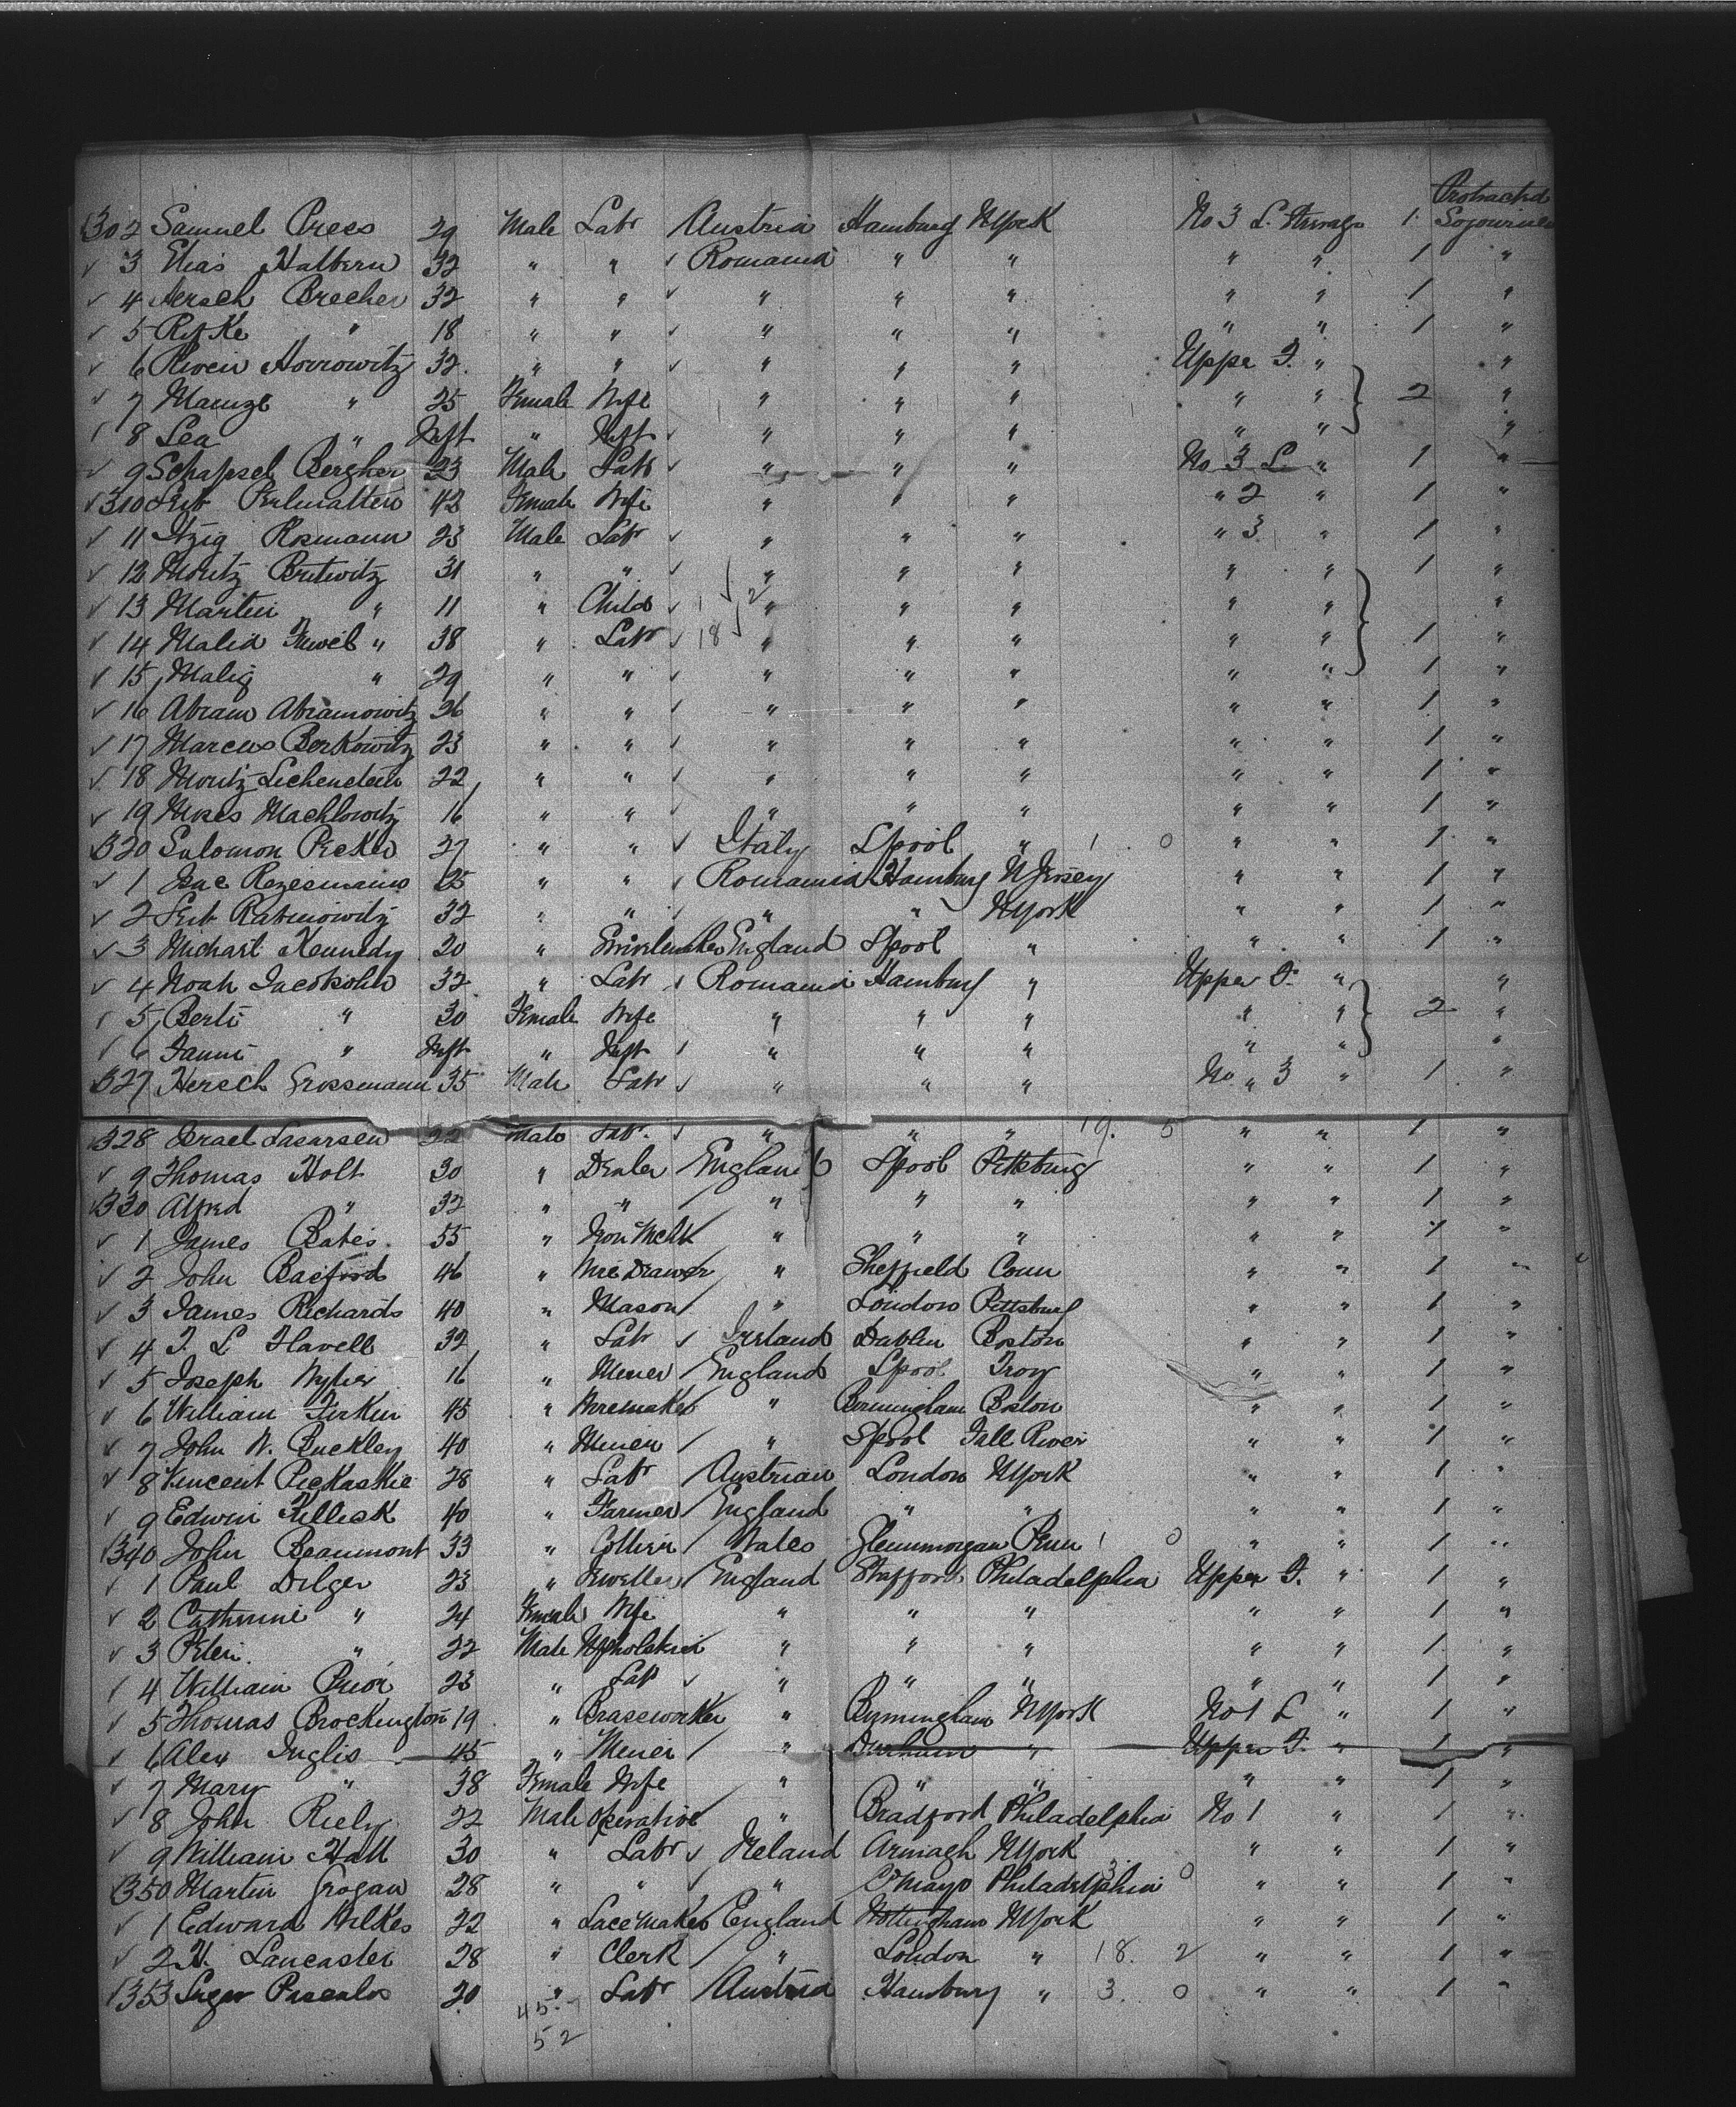 Protracted
302 Samuel Press 29 Male Labr Austria Hamburg NYork No 3 L. Steerage 1 Sojourner
3 Elias Halbern 32 " " Romania " " " " 1 "
4 Hersch Brecher 32 " " " " " " " 1 "
5 Rifke " 18 " " " " " " " 1 "
6 Horrowitz 32 " " " " " Upper F. " "
7 " 25 Female Wife " " " " " 2 "
8 Lea " Inft " Inft " " " " " "
9 Schapsel Bergher 23 Male Labr " " " No 3 L. " 1 "
310 Leib 42 Female Wife " " " " 2 " 1 "
11 Itzig Rosmann 23 Male Labr " " " " 3 " 1 "
12 Moritz 31 " " " " " " " 1 "
13 Martin " 11 " Child 1 2 " " " " " "
14 " 38 " Labr 18 " " " " " 1 "
15 Malig " 29 " " " " " " " 1 "
16 Abram Abramowitz 26 " " " " " " " 1 "
17 Marcus Berkowitz 23 " " " " " " " 1 "
18 Moritz Lichenstein 22 " " " " " " " 1 "
19 Moses Machlowitz 16 " " " " " " " 1 "
320 Salomon Picker 27 " " Italy Lpool " 1 0 " " 1 "
1 Isac 25 " " Romania Hamburg N Jersey " " 1 "
2 Leib Rabinowitz 32 " " " " NYork " " 1 "
3 Michael Kennedy 20 " England Lpool " " " 1 "
4 Noah Jacobsohn 32 " Labr Romania Hamburg " Upper F. " "
5 Berti " 30 Female Wife " " " " " 2 "
6 Fanni " Inft " Inft " " " " " "
327 Hersch Grossmann 35 Male Labr " " " No " 3 " 1 "
328 Israel Lazarsen 22 Male Labr. " " " 19. 5 " " 1 "
9 Thomas Holt 30 " Dealer England Lpool Pittsburg " " 1 "
330 Alfred " 32 " " " " " " " 1 "
1 James Bates 55 " Iron Mcht " " " " " 1 "
2 John Basford 46 " Wire Drawer " Sheffield Conn " " 1 "
3 James Richards 40 " Mason " London Pittsburg " " 1 "
4 F. L Flavell 32 " Labr Ireland Dublin Boston " " 1 "
5 Joseph Wylier 16 " Miner England Lpool Troy " " 1 "
6 William Firkin 45 " Wiremaker " Birmingham Boston " " 1 "
7 John W. Buckley 40 " Miner " Lpool Fall River " " 1 "
8 Vincent 28 " Labr Austrian London NYork " " 1 "
9 Edwin Killick 40 " Farmer England " " " " 1 "
340 John Beaumont 33 " Collier Wales Glennmorgan Penn 1 0 " " 1 "
1 Paul Dilger 23 " Jeweller England Stafford Philadelphia Upper F. " 1 "
2 Catherine " 24 Female Wife " " " " " 1 "
3 Peter " 22 Male Upholsterer " " " " " 1 "
4 William Prior 23 " Labr " " " " " 1 "
5 Thomas Brockington 19 " Brassworker " Birmingham NYork No 1 L " 1 "
6 Alex Inglis 45 " Miner " Durham " Upper F. " 1 "
7 Mary " 38 Female Wife " " " " " 1 "
8 John Riely 22 Male Operative " Bradford Philadelphia No 1 " 1 "
9 William Hall 30 " Labr Ireland Armagh NYork " " 1 "
350 Martin Grogan 28 " " " Co Mayo Philadelphia 3. 0 " " 1 "
1 Edward Wilkes 22 " Lace maker England Nottingham NYork " " 1 "
2 H. Lancaster 28 " Clerk " London " 18. 2 " " 1 "
353 20 " Labr Austria Hamburg " 3. 0 " " 1 "
45.7
52